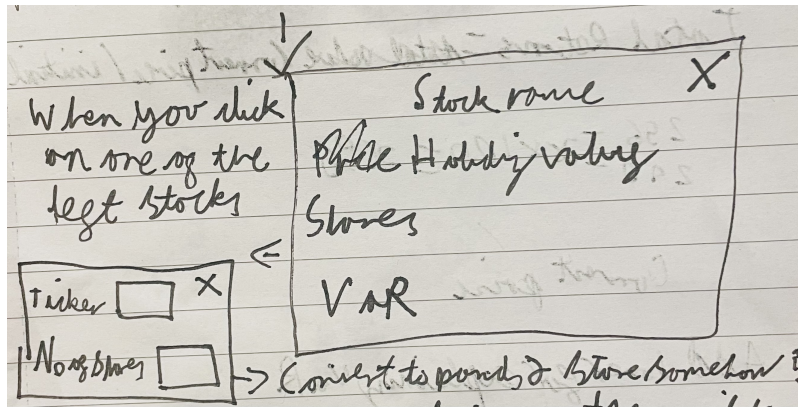 When you click
on one of the
left stocks
Stock name X
Holding value
Shares
VaR
Ticker X
No of Shares
Convert to pounds & store somehow